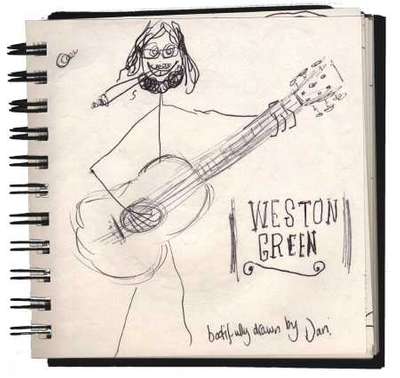 WESTON
GREEN
bootifully drawn by Dani